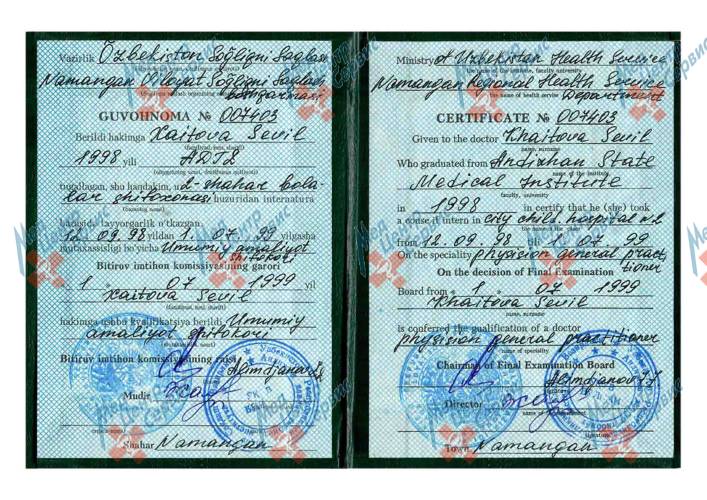 Vazirlik Özbekiston Soğliqni Saqlash
Namangan Viloyat Soğliqni Saqlash
boshqarmasi
GUVOHNOMA № 007403
Berildi hakimga Xaitova Sevil
(familiyasi, ismi, sharifi)
1998 yili ADTI
tugallagan, shu handakim, u 2-shahar bola
lar shifoxonasi huzuridan internatura
tayyorgarlik o'tkazgan.
12.09.98 yildan 1.07.99 yilgasha
mutaxassisligi bo'yicha Umumiy amaliyot
shifokori
Bitiruv imtihon komissiyasining qarori
1 07 1999 yil
Xaitova Sevil
(familiyasi, ismi, sharifi)
hakimga ushbu kvalifikatsiya berildi Umumiy
amaliyot shifokori
Bitiruv imtihon komissiyasining raisi
Alimdjanov
Mudir
Shahar Namangan
Ministry of Uzbekistan Health Service
the name of the institute, faculty university
Namangan Regional Health Service
the name of health service Department
CERTIFICATE № 007403
Given to the doctor Khaitova Sevil
name, surname
Who graduated from Andizhan State
the name of the institute,
Medical Institute
faculty, university
in 1998 in certify that he (she) took
a course if intern in city child. hospital N2
the name of the place
from 12.09.98 till 1.07.99
On the speciality physision general pract
tioner
On the decision of Final Examination
Board from 1 07 1999
Khaitova Sevil
name, surname
is conferred the qualification of a doctor
physision general practitioner
name of specialty
Chairman of Final Examination Board
Alimdjanov
Director
signature
Town Namangan